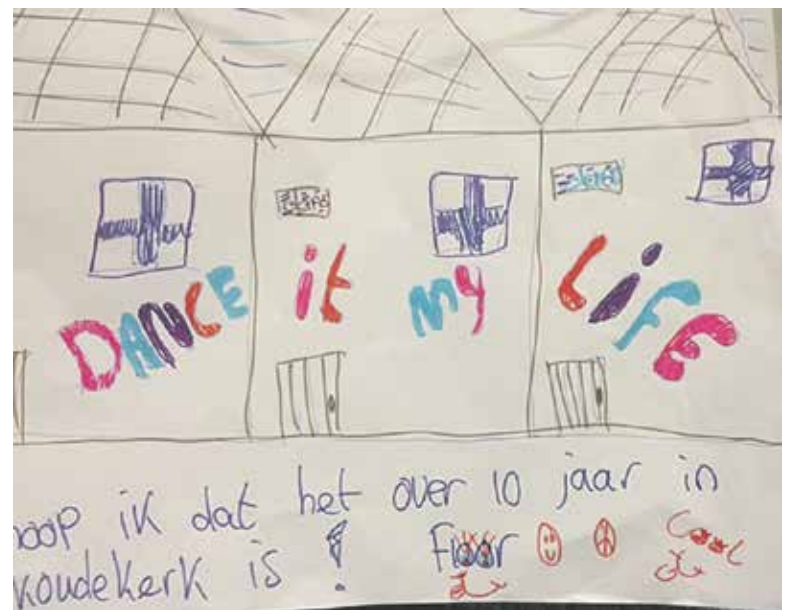 DANCE it MY LiFE
hoop ik dat het over 10 jaar in
koudekerk is ! Floor Cool